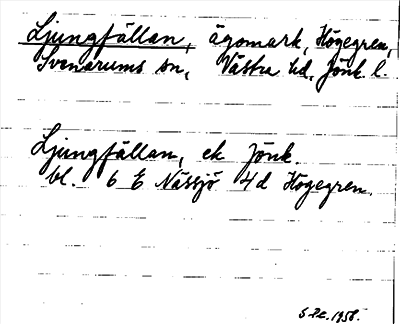 Ljungfällan, ägomark, Högegren,
Svenarums sn, Västra hd, Jönk. l.
Ljungfällan, ek Jönk.
bl. 6 E Nässjö 4d Högegren.
1958.